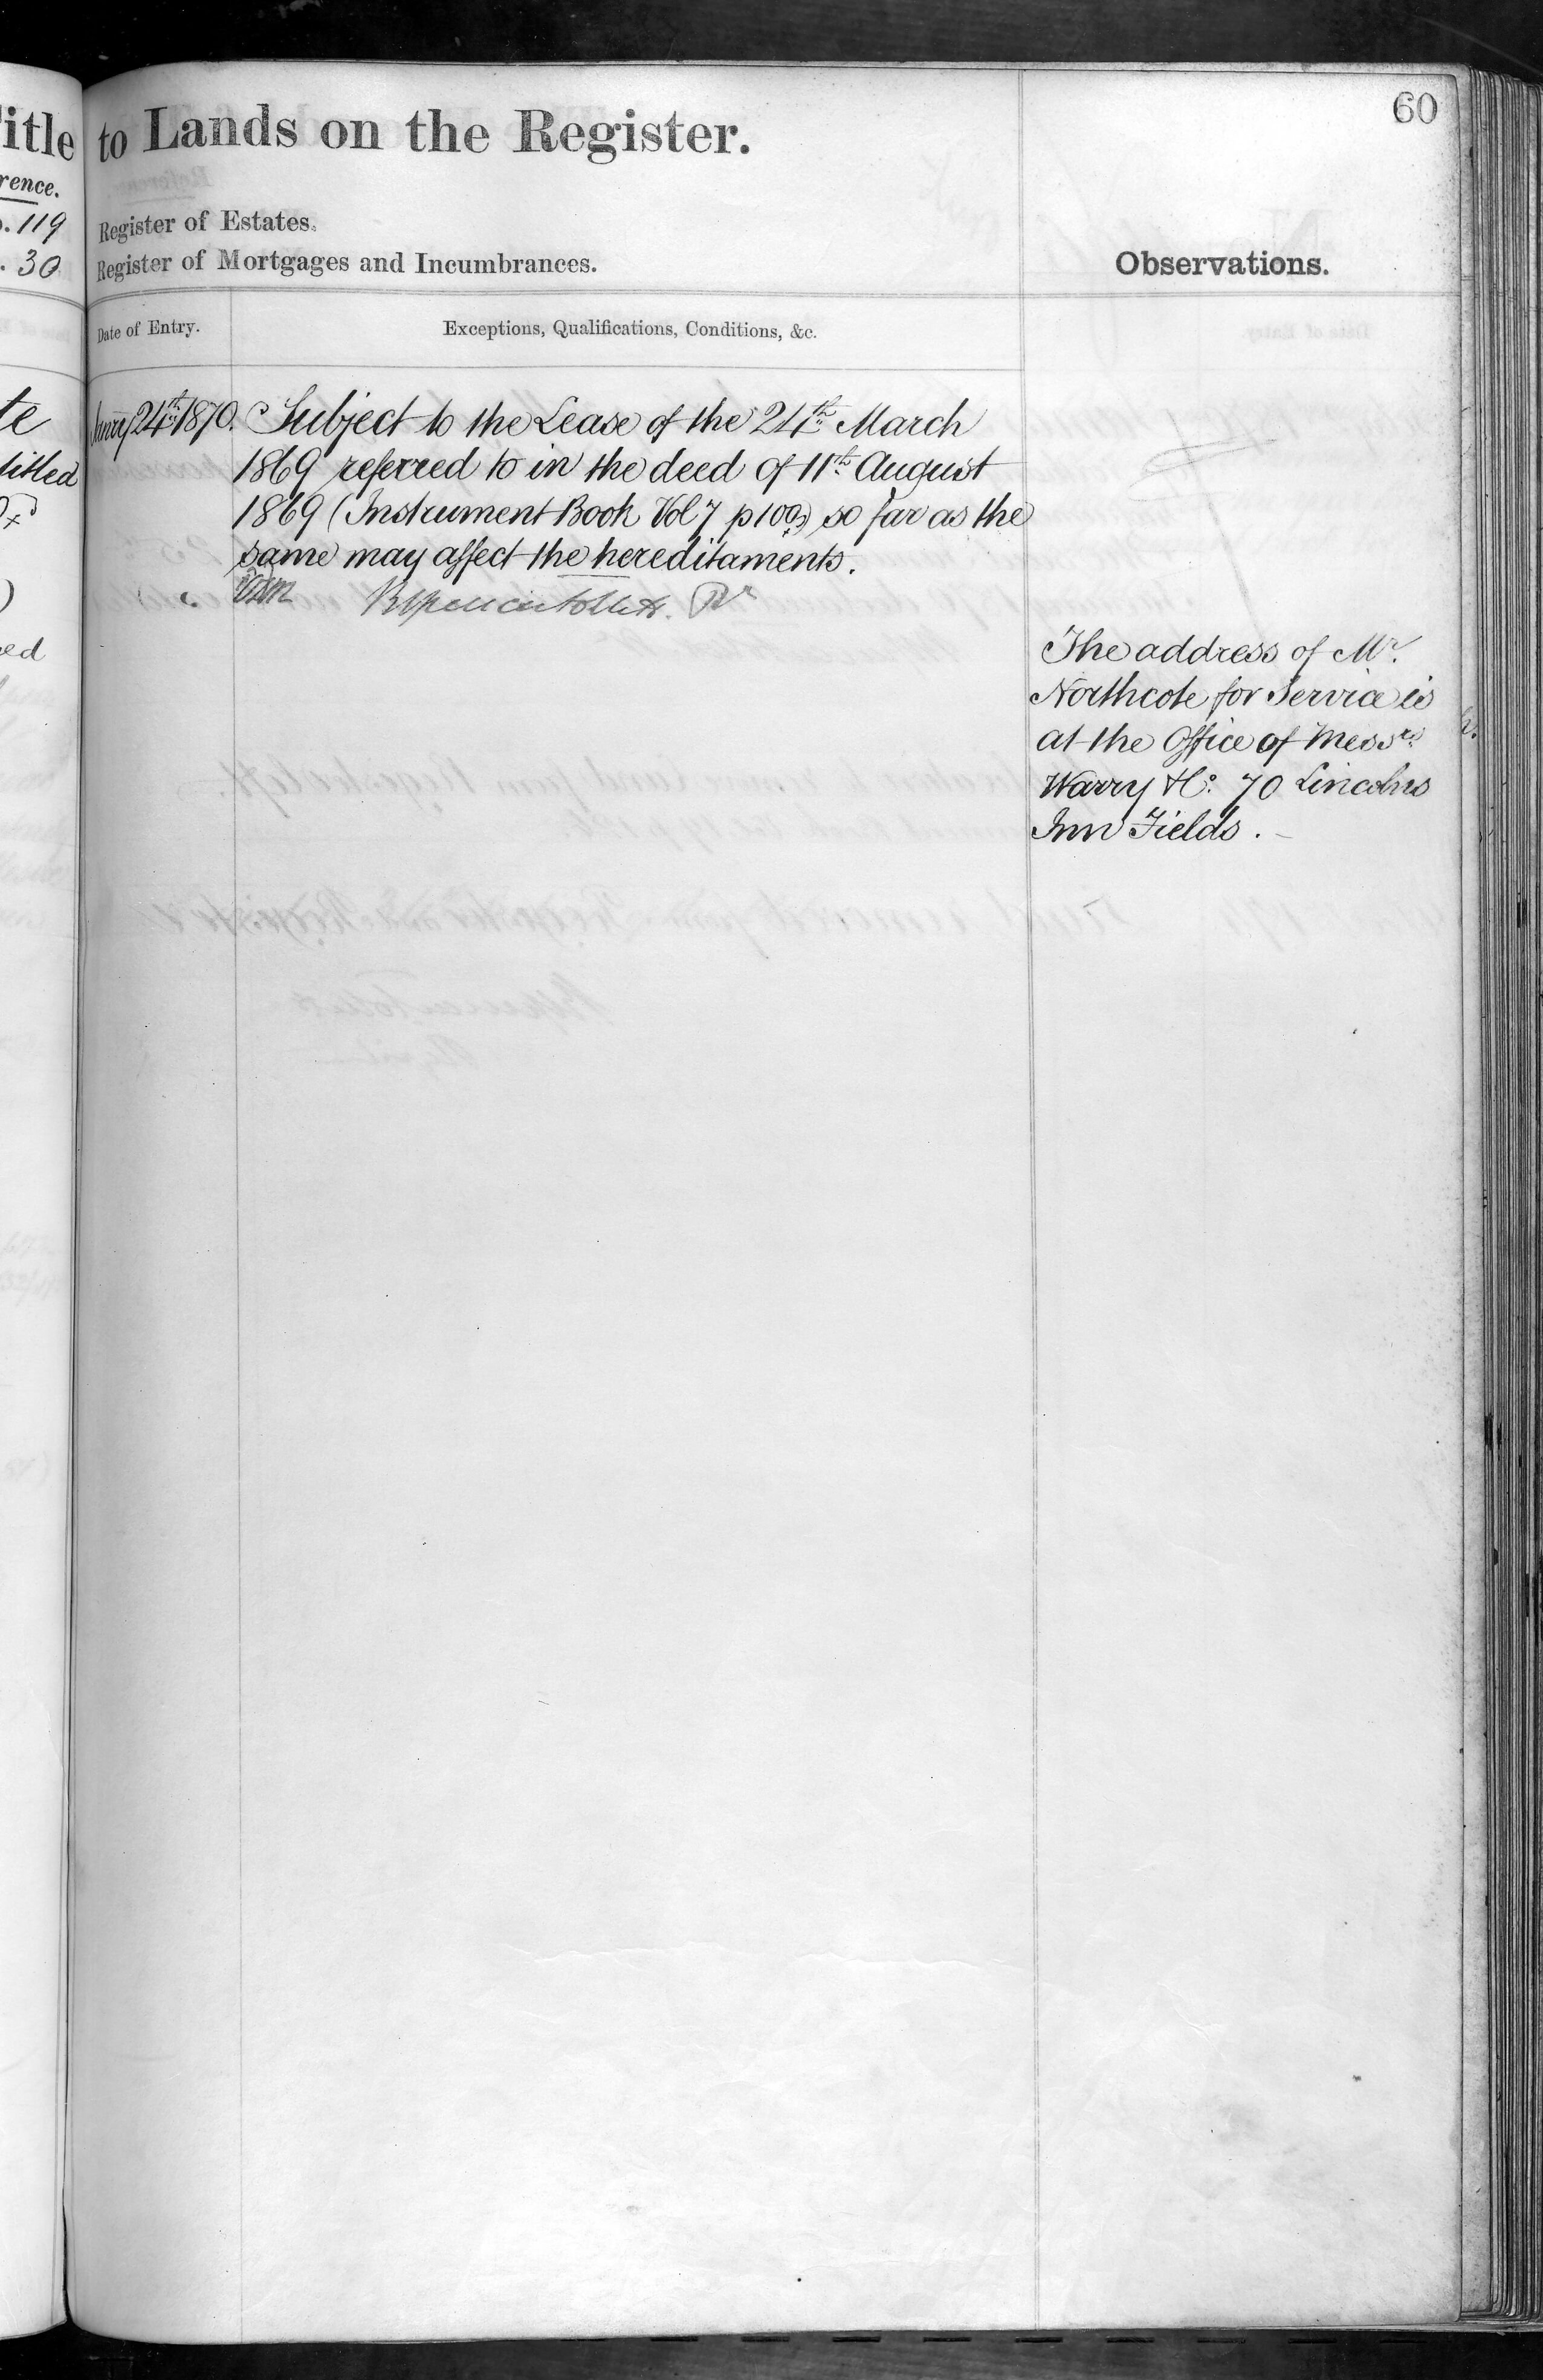 60
itle to Lands on the Register.
rence.
119 Register of Estates.
30 Register of Mortgages and Incumbrances.
Observations.
Date of Entry. Exceptions, Qualifications, Conditions, &c.
24th 1870. Subject to the Lease of the 24th March
1869 referred to in the deed of 11th August
1869 (Instrument Book Vol 7 p 100) so far as the
same may affect the hereditaments.
The address of Mr.
Northcote for Service is
at the Office of Messrs
Warry & Co. 70 Lincolns
Inn Fields.